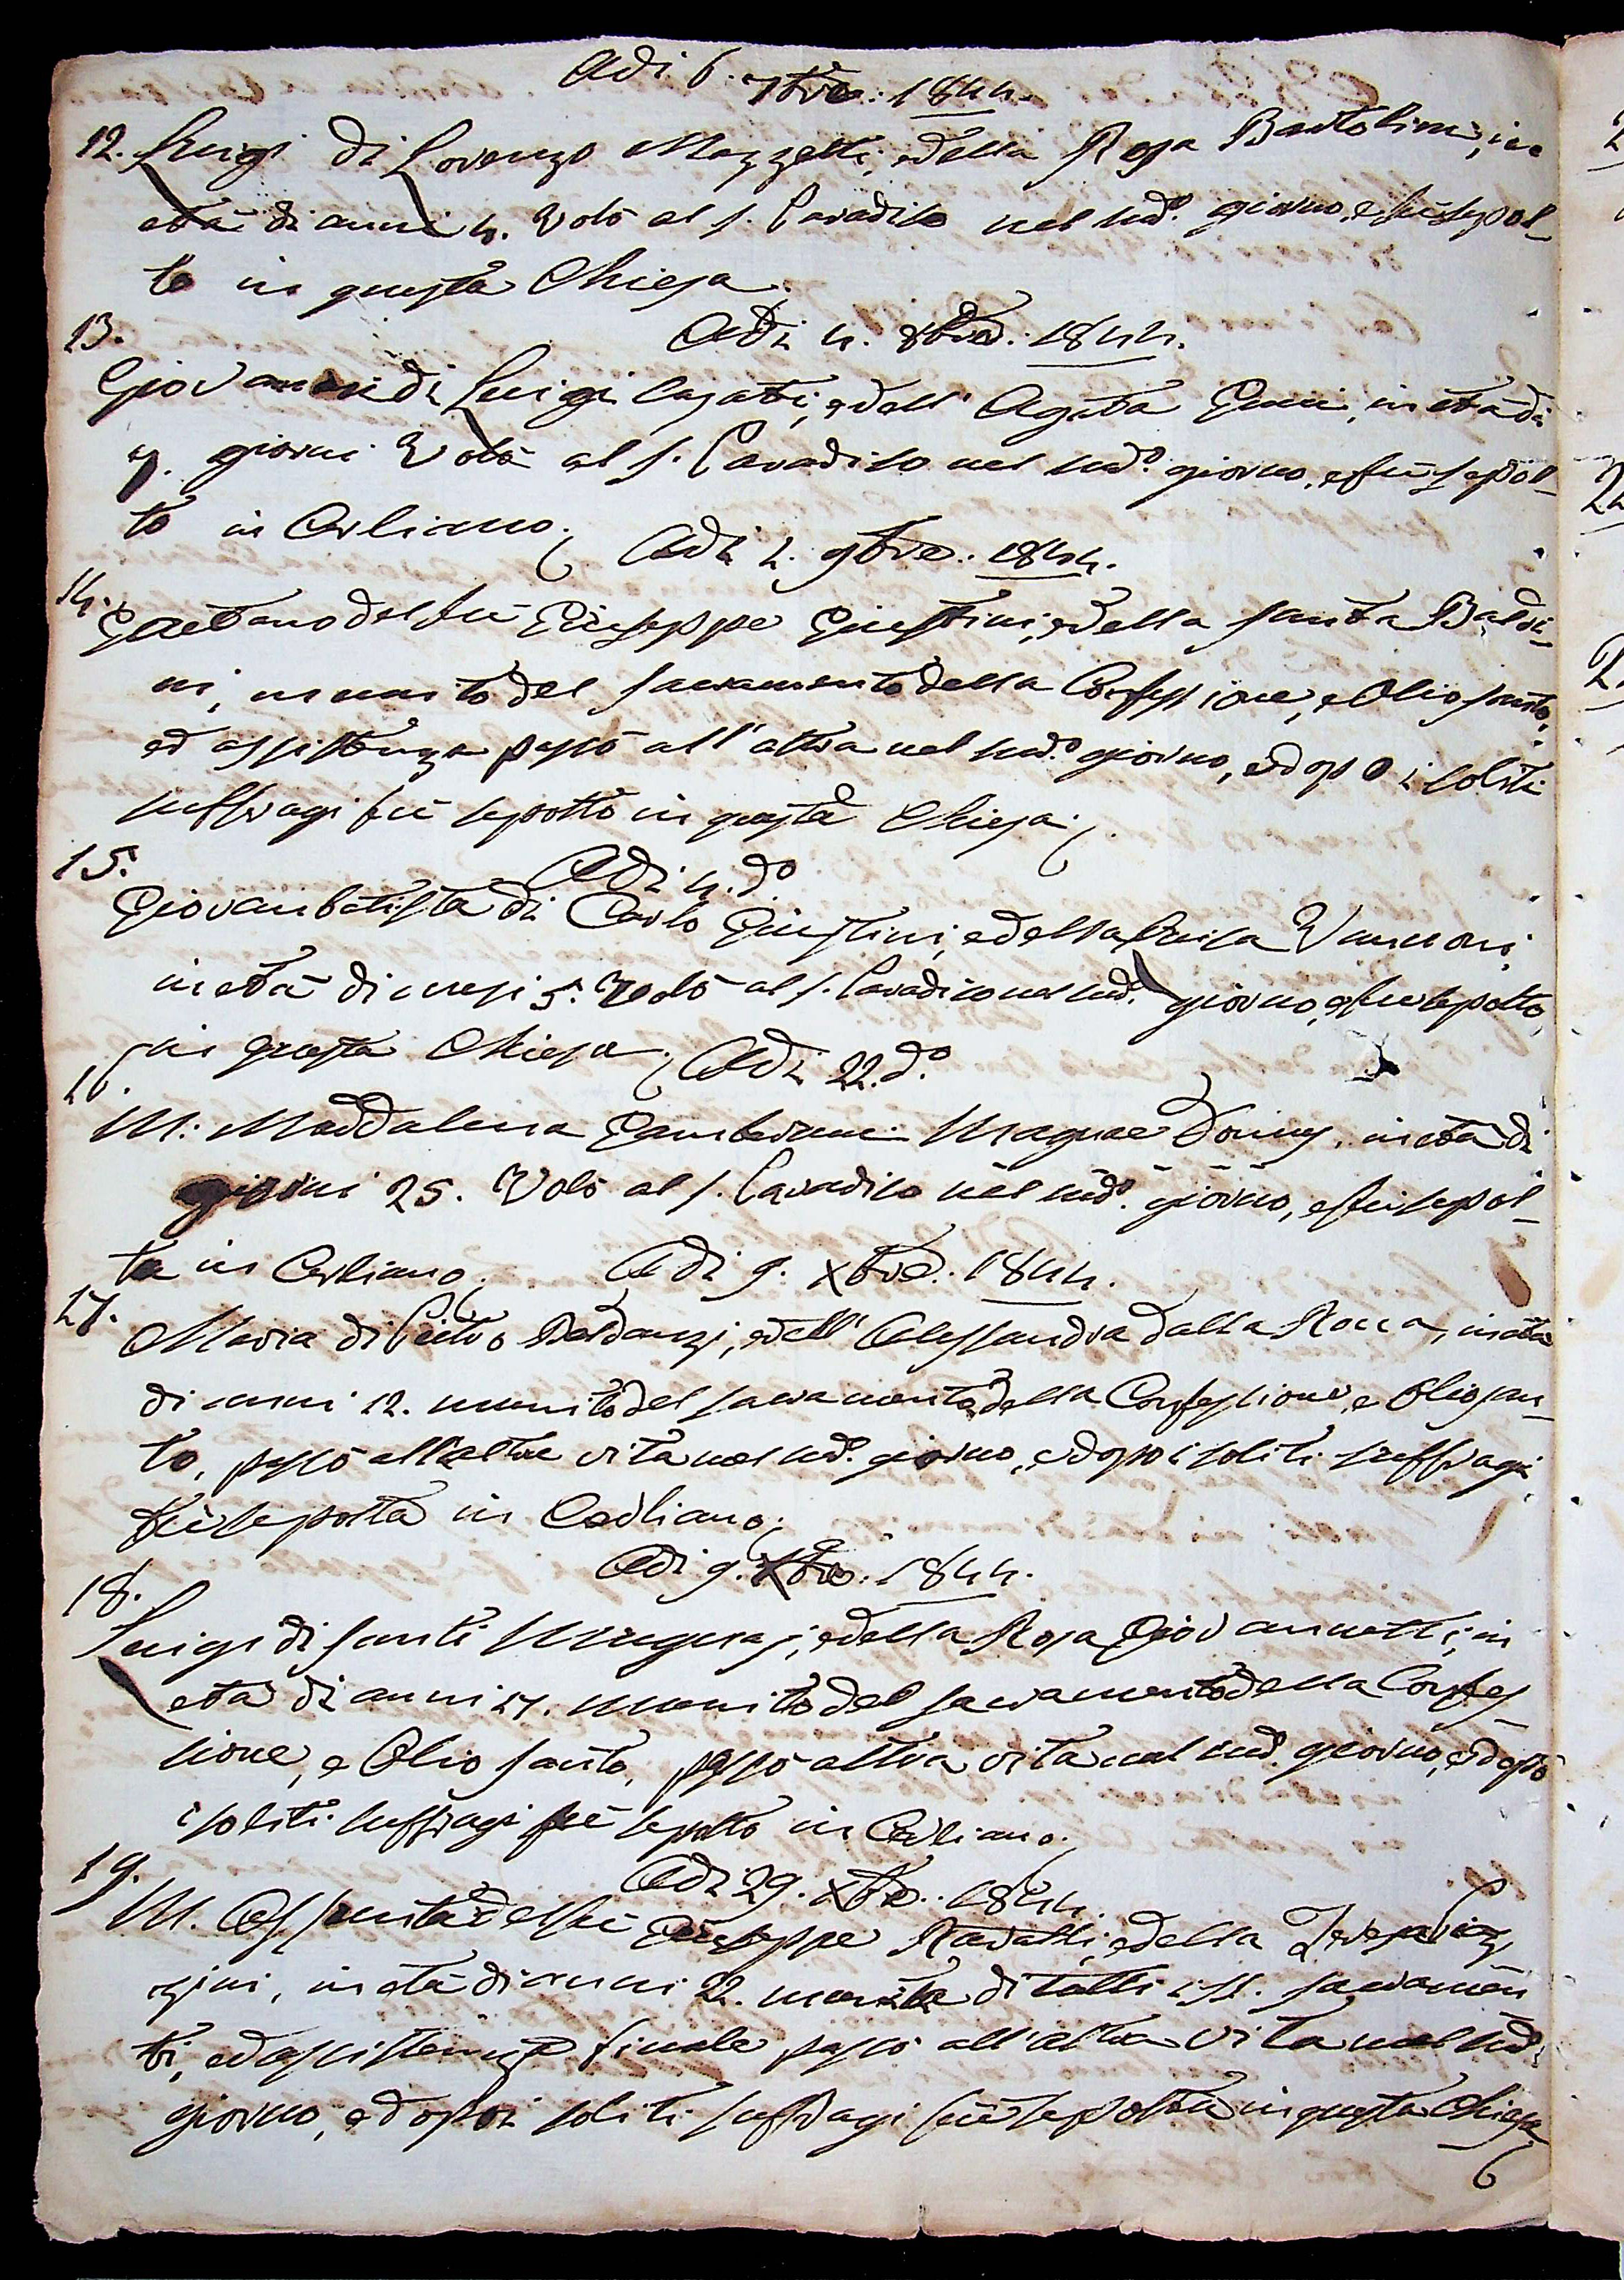 Adi 6. 7bre. 1844.
12. Luigi di Lorenzo Mazzetti, e della Rosa Bartolini, in
età di anni 4. Volò al S. Paradiso nel sud.º giorno, e fù sepol-
to in questa Chiesa.
13. Adi 4. 8bre. 1844.
Giovanni di Luigi Casati, e dell' Agata in età di
giorni Volò al S. Paradiso nel sud.º giorno, e fù sepol-
to in Cerliano.
Adi 2. 9bre. 1844.
14. Gaetano del fù Giuseppe Giustini, e della Santa Baldi-
ni, munito del Sacramento della Confessione, e Olio Santo,
ed assistenza passò all'altra nel sud.º giorno, e dopo i soliti
suffragi fù sepolto in questa Chiesa.
15. Adi 4. dº
Giovanbatista di Carlo Giustini, e della Luisa Vannoni,
in età di mesi 5. Volò al S. Paradiso nel sud.º giorno, e fù sepolto
in questa Chiesa.
Adi 22. dº.
16. M. Maddalena in età di
giorni 25. Volò al S. Paradiso nel sud.º giorno, e fù sepol-
ta in Cerliano.
Adi 9. Xbre. 1844.
17. Maria di Pietro Baldanzj, e dell' Alessandra dalla Rocca, in età
di anni 12. munito del Sacramento della Confessione, e Olio San-
to, passò all'altra vita nel sud.º giorno, e dopo i soliti suffragi
fù sepolta in Cerliano.
Adi 9. Xbre. 1844.
18. Luigi di Santi e della Rosa Giovannetti, in
età di anni 17. munito del Sacramento della Confes-
sione, e Olio Santo, passò altra vita nel sud. giorno, e dopo
i soliti suffragi fù sepolto in Cerliano.
Adi 29. Xbre. 1844.
19. M. Assunta del fù Giuseppe e della Teresa Piz-
zini, in età di anni 22. munita di tutti i SS. Sacramen
ti, ed assistenza finale passò all'altra vita nel sud.
giorno, e dopo i soliti suffragi fù sepolta in questa Chiesa